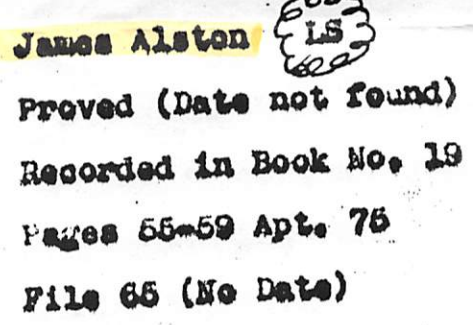 James Alston LS
Proved (Date not found)
Recorded in Book No. 19
Pages 55-59 Apt. 75
File 65 (No Date)